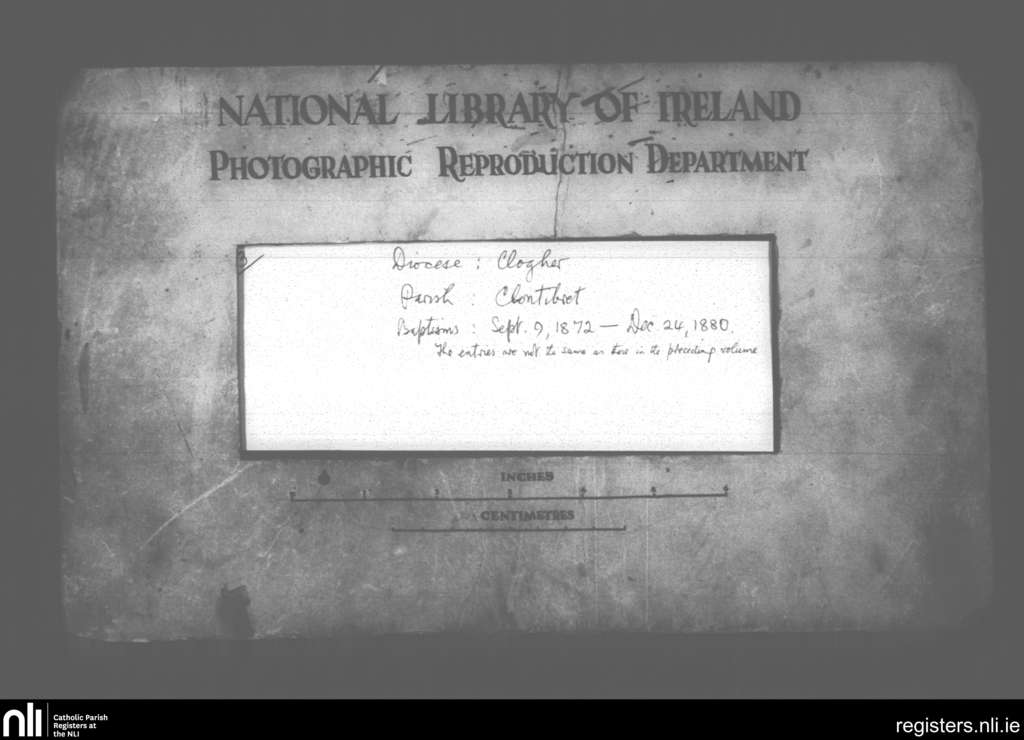 NATIONAL LIBRARY OF IRELAND
PHOTOGRAPHIC REPRODUCTION DEPARTMENT
3/
Diocese : Clogher
Parish : Clontibret
Baptisms : Sept. 9, 1872 — Dec. 24, 1880.
The entries are not the same as those in the preceding volume
INCHES
0 1 2 3 4 5 6
CENTIMETRES
nli
Catholic Parish
Registers at
the NLI
registers.nli.ie